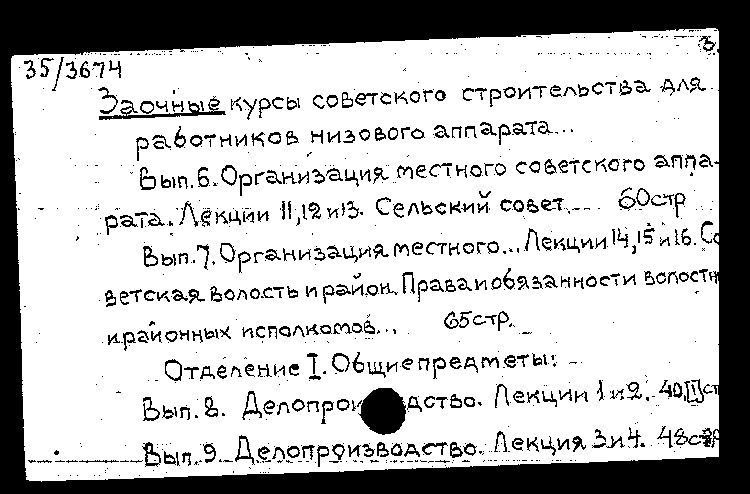 3.
35/3674
Заочные курсы советского строительства для
работников низового аппарата...
Вып.6. Организация местного советского аппа-
рата. Лекции 11,12 и 13. Сельский совет... 60стр
Вып.7. Организация местного... Лекции 14,15 и 16. Со
ветская волость и район. Права и обязанности волостн
и районных исполкомов... 65стр.
Отделение I. Общие предметы:
Вып.8. Делопрои дство. Лекции 1 и 2. 40,[1]ст
Вып.9. Делопроизводство. Лекция 3 и 4. 48стр